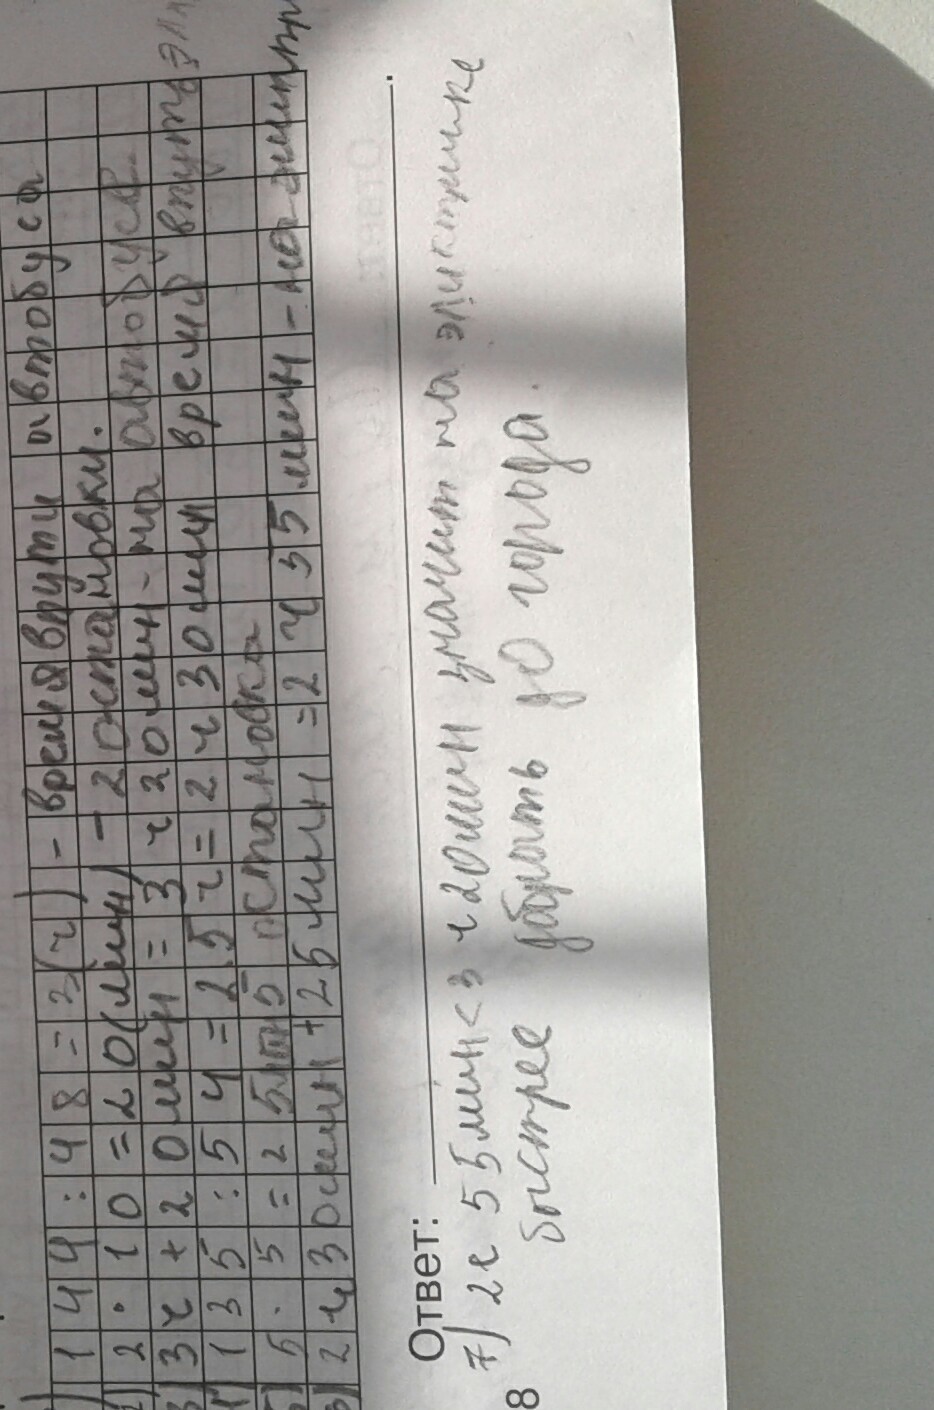 ) 144 : 48 = 3 (ч) - время впути автобуса
2) 2 · 10 = 20 (мин) - 2 остановки.
3) 3 ч + 20 мин = 3 ч 20 мин - на автобусе
4) 135 : 54 = 2,5 ч = 2 ч 30 мин время впути
5) 5 · 5 = 25 мин 5 остановка
2 ч 30 мин + 25 мин = 2 ч 55 мин - на
Ответ:
7) 2 ч 55 мин < 3 ч 20 мин значит на эликтрике
быстрее добрать до города.
8